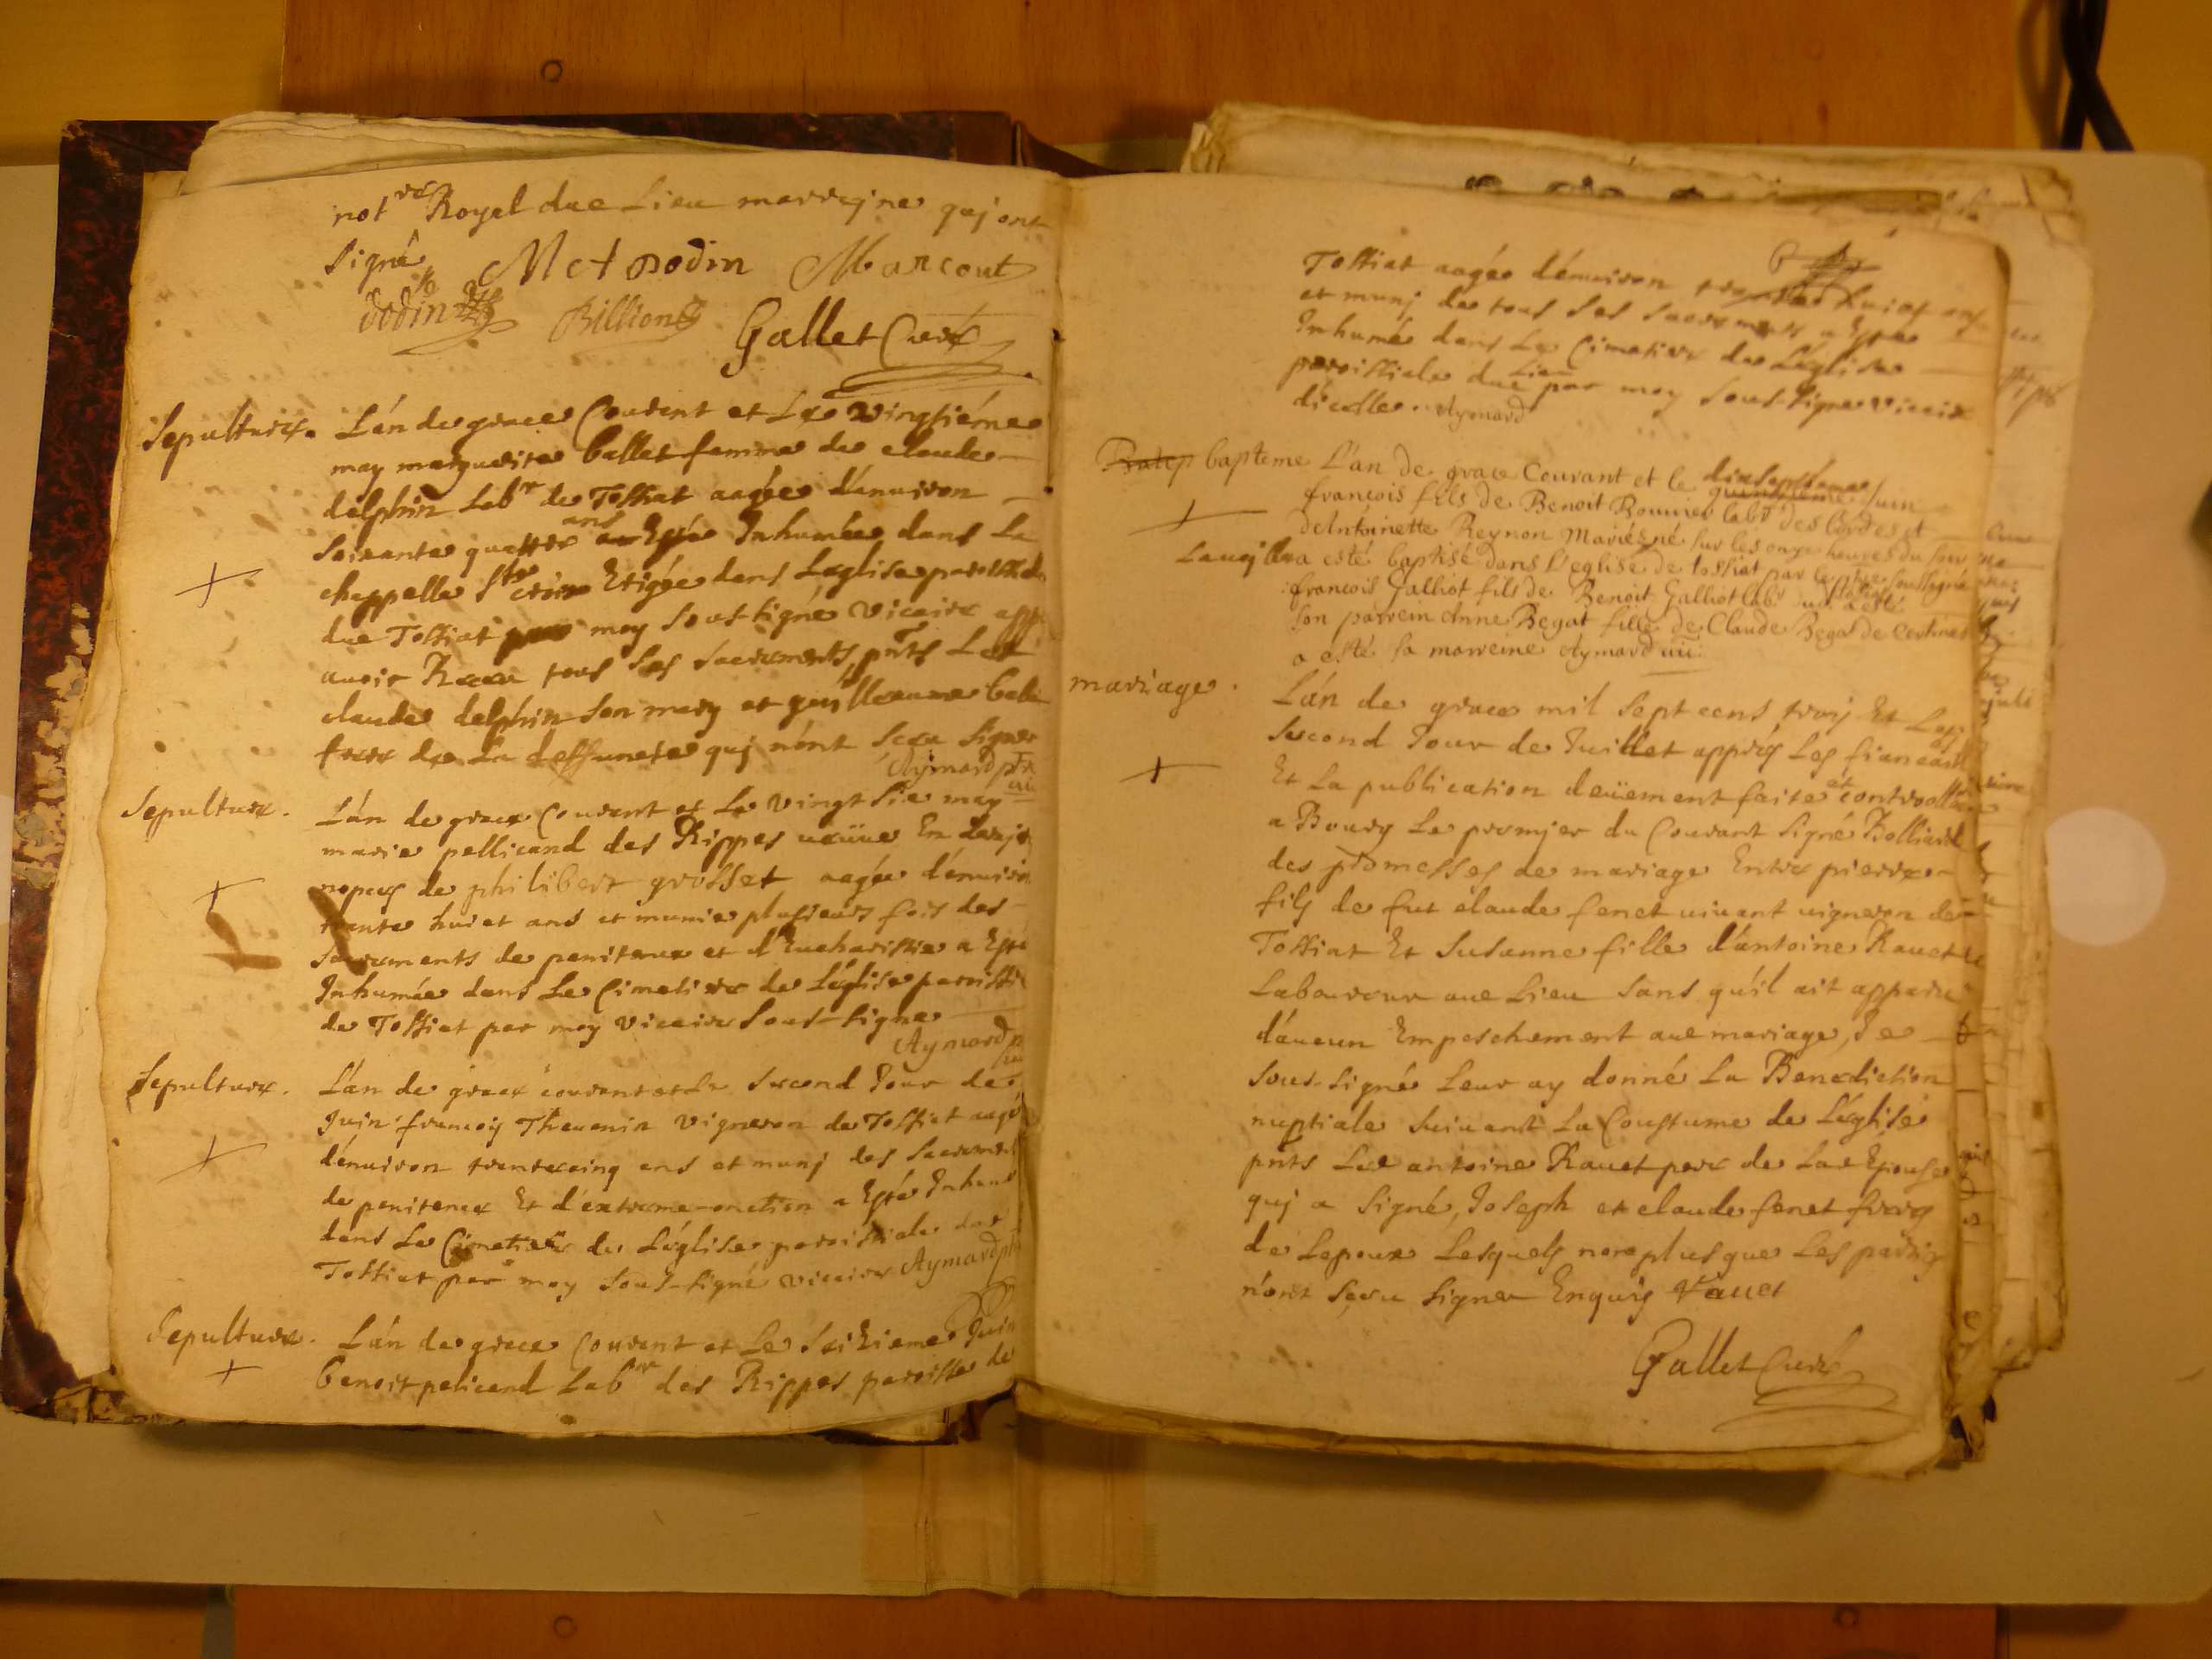 not re Royal due Lieu marrejne quj ont
signé M Ct Dodin Marcout
dodin Billion Gallet Curé
Sepulture. L'án de grace Courent et Le vingtiéme
may marguerite Ballet femme de claude
delphin Labr de Tossiat aagée d'enuiron
soixante quattre ans Esté Inhumée dans La
chappelle Ste croix Erigée dans Leglise
due Tossiat par moy sous-signé vicaire
auoir Receu tous Ses Sacrements, pnts Led
claude delphin son mary et guilleaume
frere de La deffuncte quj n'ónt sceu signer
Aymard ptr
Sepulture. L'án de grace Courant et Le vingt Six may
marie pellicand des Rippes ueüue En
nopces de philibert grosset aagée d'énuiron
trente huict ans et munie plusieurs fois des
sacrements de penitence et d'Eucharistie a Esté
Inhumée dans Le Cimetiere de Léglise
de Tossiat par moy vicaire sous-signe
Aymard p
Sepulture. L'án de grace courent et Le second Jour de
Juin francois Theuenin vigneron de Tossiat aagé
d'énuiron trente cinq ans et munj des sacrements
de penitence Et d'éxtreme-onction a Esté Inhumé
dans Le Cimetiere de Léglise paroissiale due
Tossiat par moy sous-signé vicaire Aymard
Sepulture. L'án de grace Courent et Le Seizieme Juin
Benoit pelicand Labr des Rippes paroisse de
Tossiat aagée d'énuiron trente huict ans
et munj de tous Ses Sacrements a Esté
Inhumé dans Le Cimetiere de Léglise
paroissiale due Lieu par moy sous-signe vicaire
d'icelle. Aymard
Batep bapteme L'an de grace Courant et le dixseptieme quinzieme Juin
francois fils de Benoit Bouuier labr des bordes et
dAntoinette Reynon Mariés né sur les onze heures du soir
a esté baptisé dans l'eglise de tossiat par le ptre soussigné
francois Galliot fils de Benoit Galliot labr a esté
son parrein Anne Begat fille de Claude Begat de Certines
a esté sa marreine Aymard
mariage. L'án de grace mil sept cens trois Et Le
second Jour de Juillet apprés Les fiancailles
Et La publication deüement faite et controollée
a Bourg Le premjer du Courant signé Bolliard
des promesses de mariage Entre pierre
fils de fut claude fenet uiuant uigneron de
Tossiat Et Susanne fille d'ántoine Rauet
Laboureur due Lieu sans qu'il ait apparu
d'áucun Empeschement aue mariage, Je
sous-signé Leur ay donné La Benediction
nuptiale suiuant La Coustume de Léglise
pnts Led antoine Rauet pere de Lad Epouse
quj a signé, Joseph et claude fenet freres
de Lepoux Lesquels non plus que Les parties
n'ónt sceu signer Enquis Rauet
Gallet Curé